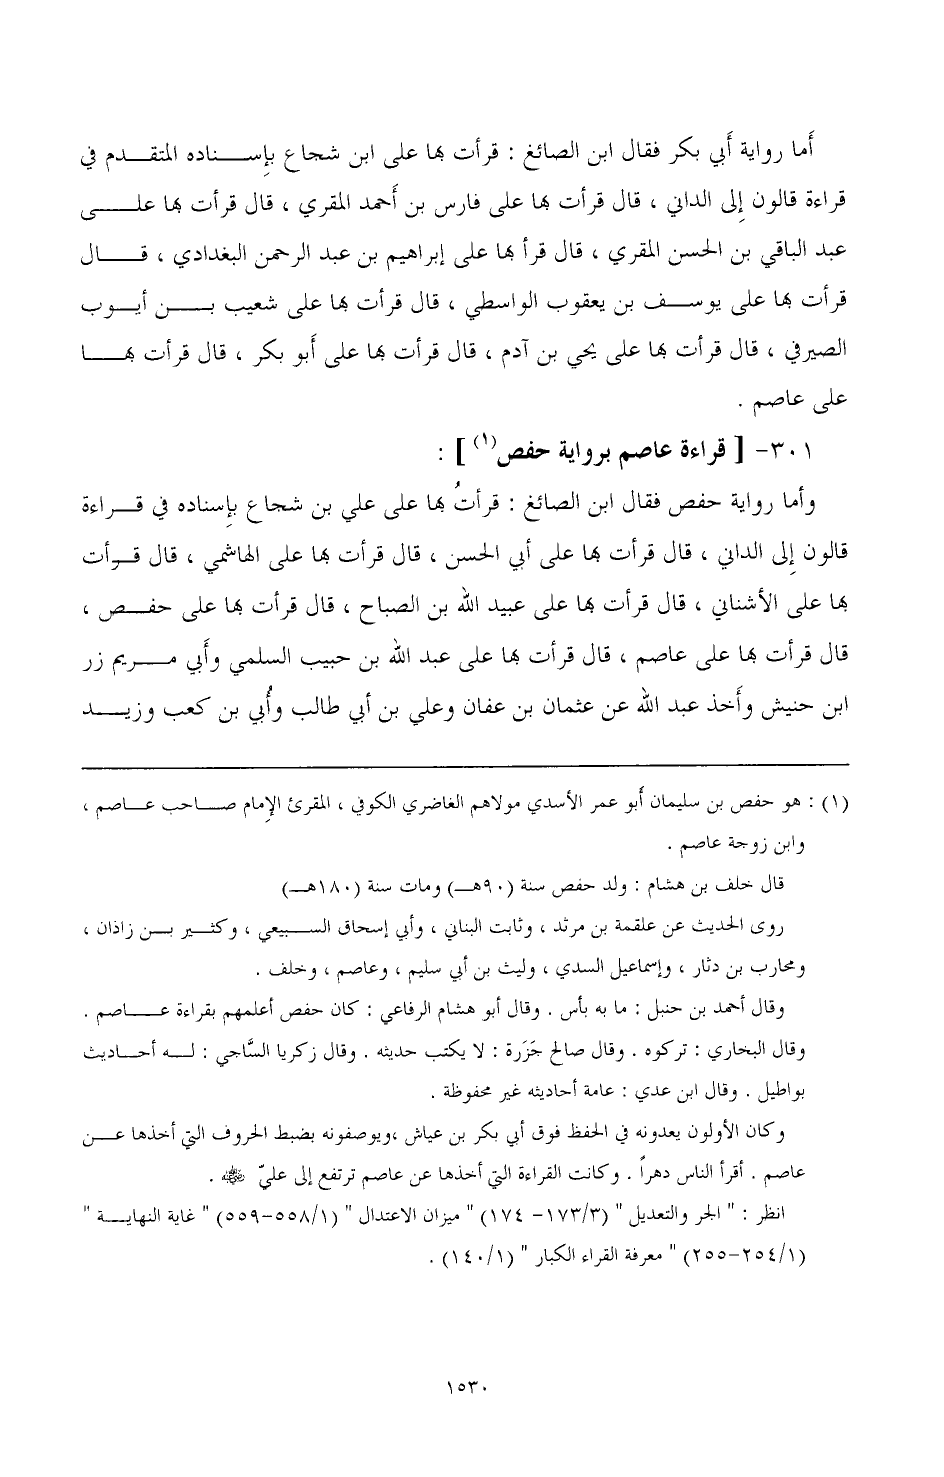 أَما رواية أَبي بكر فقال ابن الصائغ : قرأت بها على ابن شجاع بإِسـناده المتقـدم في
قراءة قالون إِلى الداني ، قال قرأت بها على فارس بن أَحمد المقري ، قال قرأت بها علـى
عبد الباقي بن الحسن المقري ، قال قرأ بها على إبراهيم بن عبد الرحمن البغدادي ، قـال
قرأت بها على يوسـف بن يعقوب الواسطي ، قال قرأت بها على شعيب بـن أيـوب
الصيرفي ، قال قرأت بها على يحي بن آدم ، قال قرأت بها على أَبو بكر ، قال قرأت بهـا
على عاصم .
٣٠١- [ قراءة عاصم برواية حفص(١) ] :
وأما رواية حفص فقال ابن الصائغ : قرأتُ بها على علي بن شجاع بإِسناده في قـراءة
قالون إِلى الداني ، قال قرأت بها على أبي الحسن ، قال قرأت بها على الهاشمي ، قال قـرأت
بها على الأشناني ، قال قرأت بها على عبيد الله بن الصباح ، قال قرأت بها على حفـص ،
قال قرأت بها على عاصم ، قال قرأت بها على عبد الله بن حبيب السلمي وأَبي مـريم زر
ابن حنيش وأَخذ عبد الله عن عثمان بن عفان وعلي بن أبي طالب وأُبي بن كعب وزيـد
(١) : هو حفص بن سليمان أَبو عمر الأسدي مولاهم الغاضري الكوفي ، المقرئ الإِمام صـاحب عـاصم ،
وابن زوجة عاصم .
قال خلف بن هشام : ولد حفص سنة (٩٠هـ) ومات سنة (١٨٠هـ)
روى الحديث عن علقمة بن مرثد ، وثابت البناني ، وأبي إسحاق السـبيعي ، وكثـير بـن زاذان ،
ومحارب بن دثار ، وإسماعيل السدي ، وليث بن أبي سليم ، وعاصم ، وخلف .
وقال أحمد بن حنبل : ما به بأس . وقال أبو هشام الرفاعي : كان حفص أعلمهم بقراءة عـاصم .
وقال البخاري : تركوه . وقال صالح جَزَرة : لا يكتب حديثه . وقال زكريا السَّاجي : لـه أحـاديث
بواطيل . وقال ابن عدي : عامة أحاديثه غير محفوظة .
وكان الأولون يعدونه في الحفظ فوق أبي بكر بن عياش ،ويوصفونه بضبط الحروف التي أخذها عـن
عاصم . أقرأ الناس دهراً . وكانت القراءة التي أخذها عن عاصم ترتفع إلى عليّ .
انظر : " الجر والتعديل " (١٧٣/٣- ١٧٤) " ميزان الاعتدال " (٥٥٨/١-٥٥٩) " غاية النهايـة "
(٢٥٤/١-٢٥٥) " معرفة القراء الكبار " (١٤٠/١) .
١٥٣٠